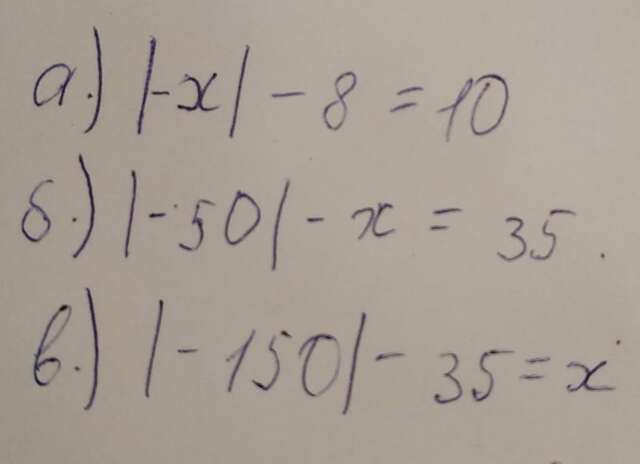 а.) |-x| - 8 = 10
б.) |-50| - x = 35.
в.) |-150| - 35 = x